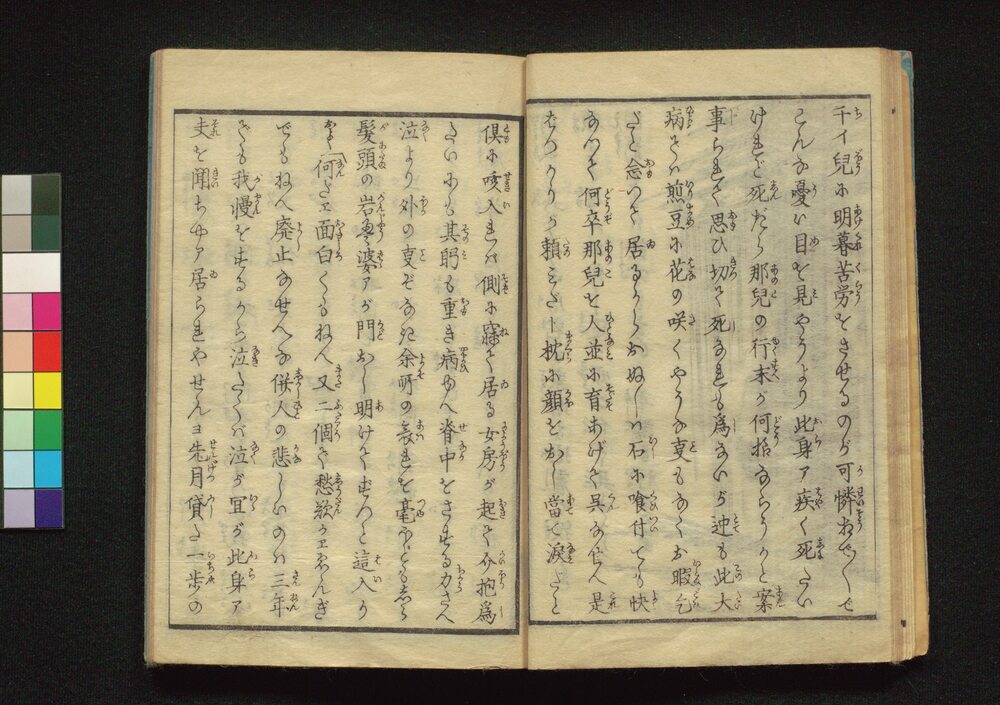 千イ兒に明暮苦労をさせるのが可憐想でし〳〵て
こんな憂い目を見やうより此身ア疾く死たい
けれど死だら那兒の行末が何指ならうかと案
事られて思ひ切て死なれも為ないが迚も此大
病では煎豆に花の咲くやうな事もなくお暇乞
だと念つて居るからおぬしは石に喰付ても快
なつて何卒那兒を人並に育あげて呉なせへ是
ばつかりが頼みだト枕に顔をおし當て涙だと
倶に咳入れば側に寐て居る女房が起て介抱為
たいにも其躬も重き病ゆへ脊中をさする力さへ
泣より外の事ぞなき余所の哀れを毫ほども志ら
髮頭の岩永婆アが門おし明けてむつと這入り
ヲヤ「何とエ面白くもねへ又二個で愁歎かエゑんぎ
でもねへ廃止なせへな併人の悲しいのは三年
でも我慢をするから泣たくば泣が宜が此身ア
夫を聞ちやア居られやせんヨ先月貸た一歩の